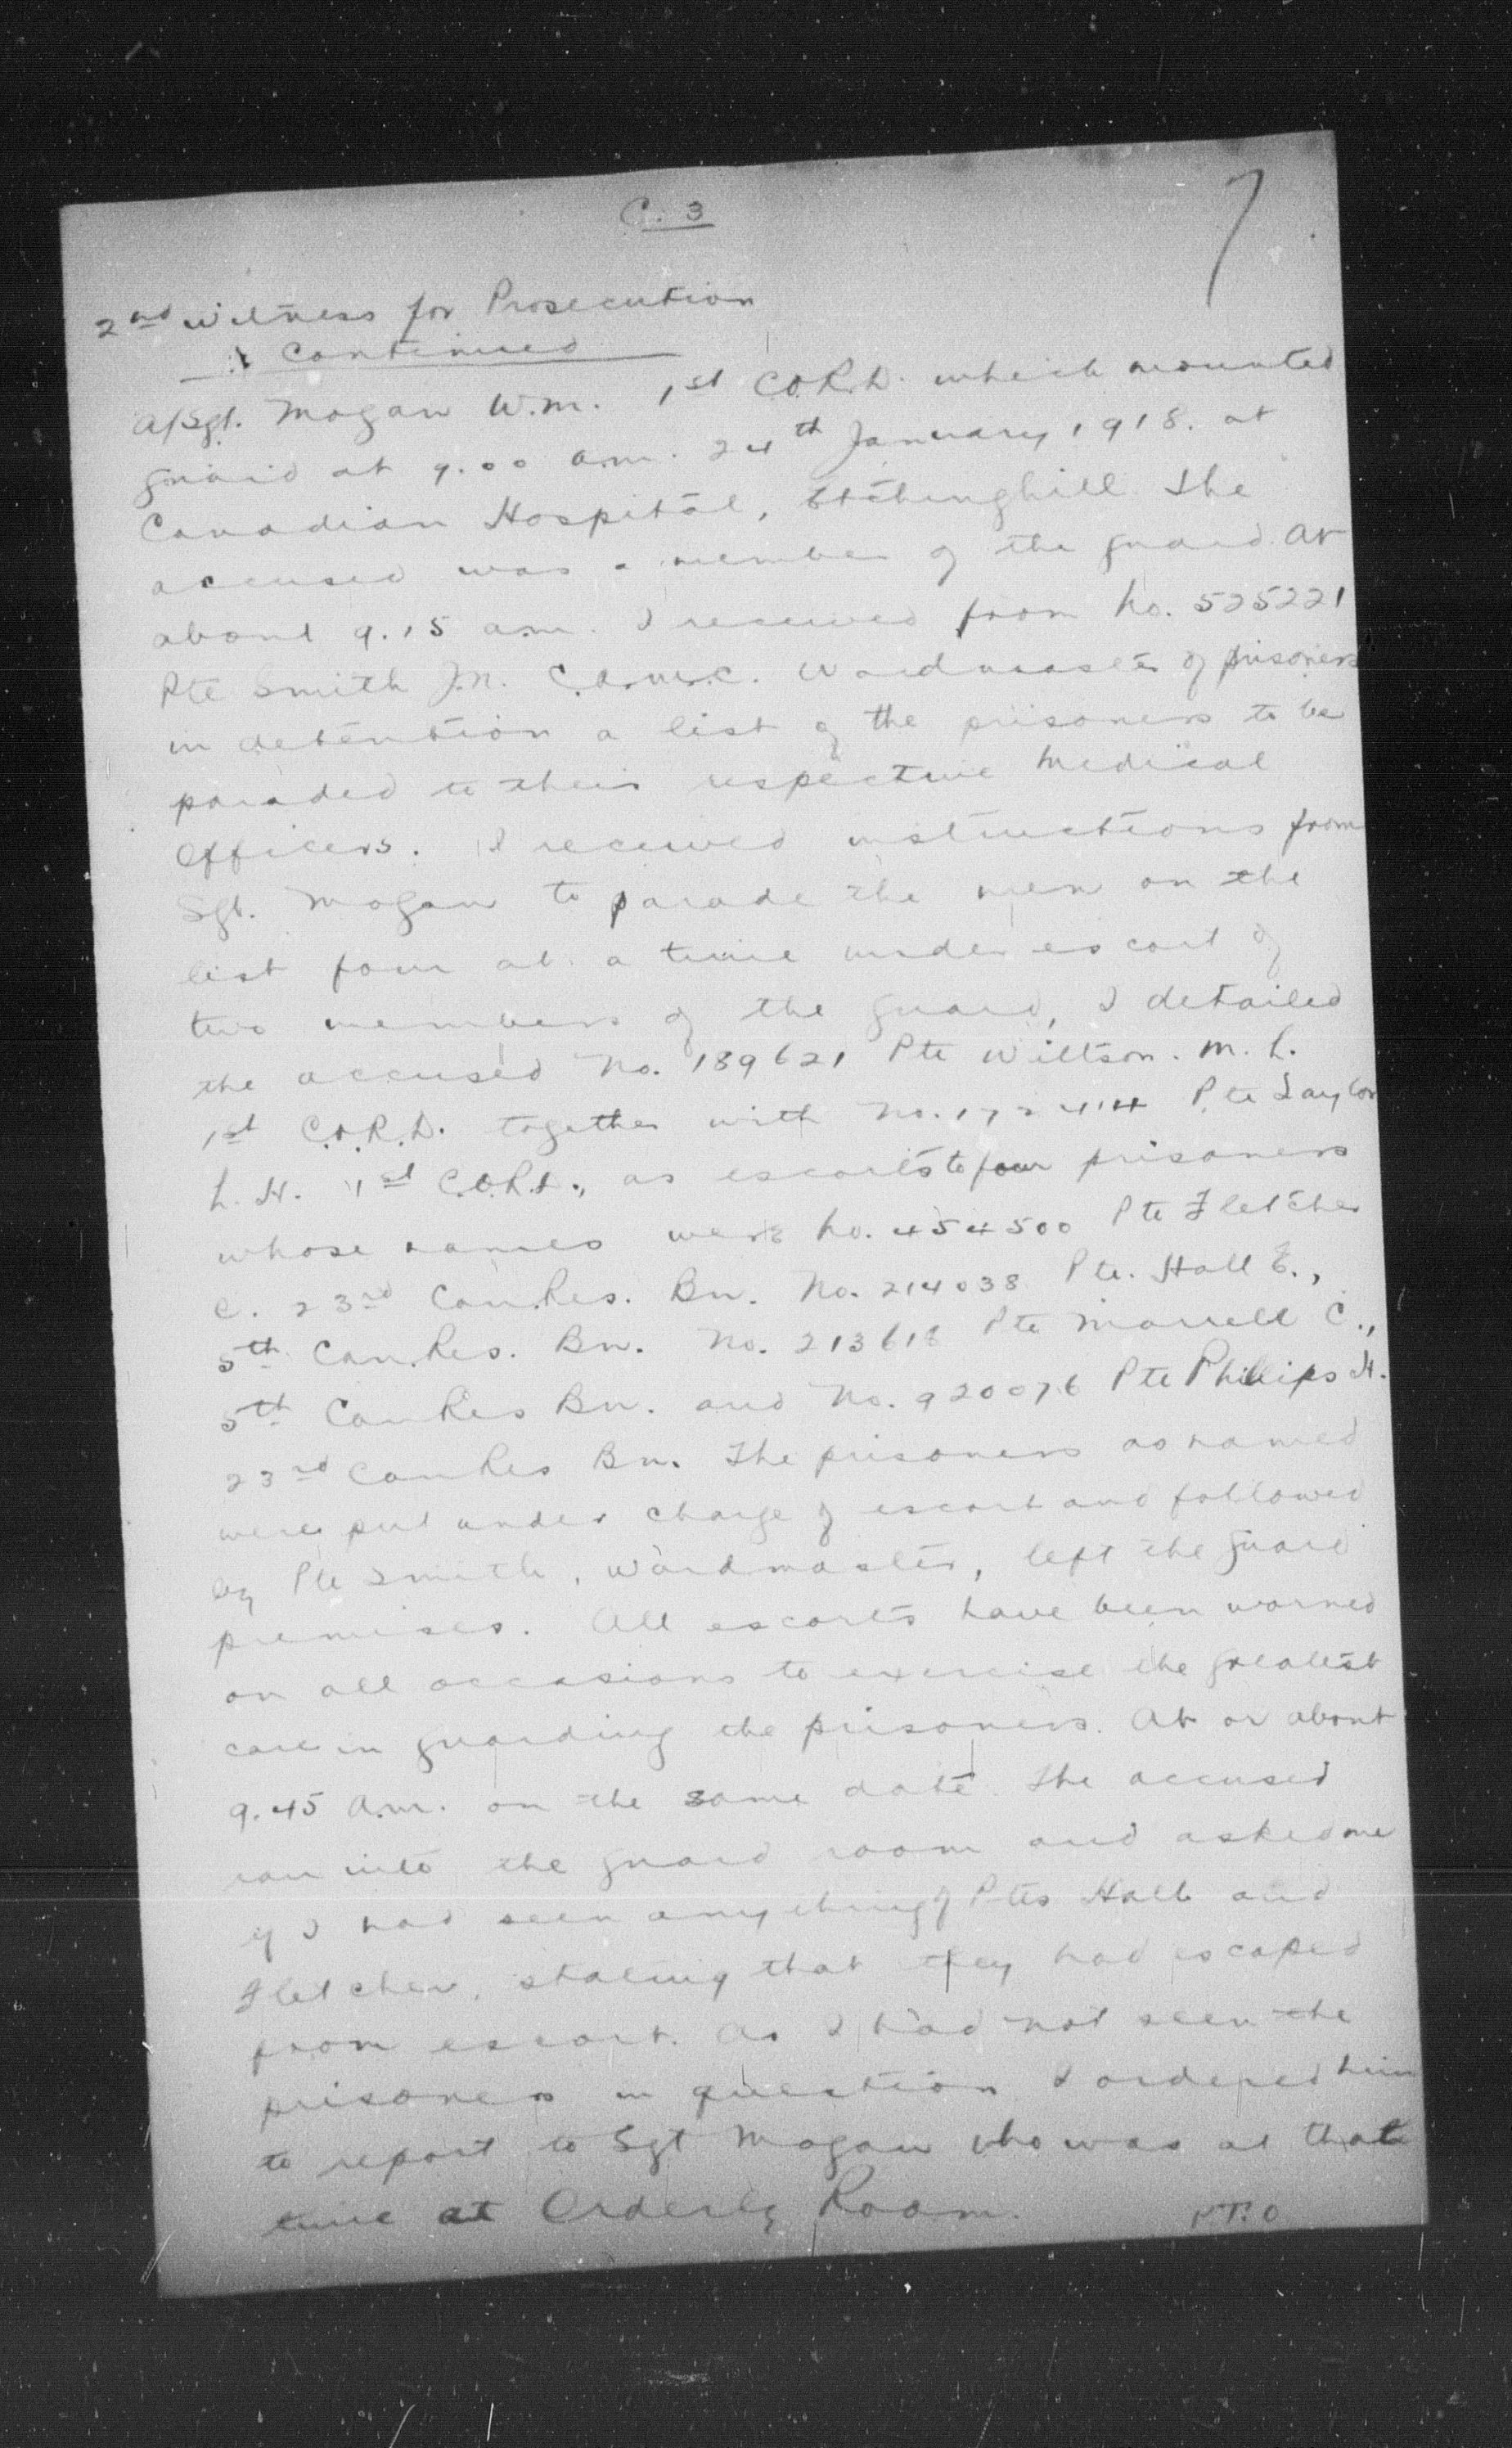 C. 3
7
2nd Witness for Prosecution
continued
A/Sgt. Mogan W.M. 1st C.O.R.D. which mounted
guard at 9.00 a.m. 24th January 1918. at
Canadian Hospital, Etchinghill. The
accused was a member of the guard. At
about 9.15 a.m. I received from No. 525221
Pte Smith J.N. C.A.M.C. Wardmaster of prisoners
in detention a list of the prisoners to be
paraded to their respective Medical
Officers. I received instructions from
Sgt. Mogan to parade the men on the
list four at a time under escort of
two members of the guard, I detailed
the accused No. 189621 Pte Wiltson. M. L.
1st C.O.R.D. together with No. 172414 Pte Taylor
L. H. 1st C.O.R.D., as escorts to four prisoners
whose names were No. 454500 Pte Fletcher
C. 23rd Can. Res. Bn. No. 214038 Pte. Hall E.,
5th Can. Res. Bn. No. 213618 Pte Morrell C.,
5th Can Res Bn. and No. 920076 Pte Phillips H.
23rd Can Res Bn. The prisoners as named
were put under charge of escort and followed
by Pte Smith, Wardmaster, left the guard
premises. All escorts have been warned
on all occasions to exercise the greatest
care in guarding the prisoners. At or about
9.45 a.m. on the same date the accused
ran into the guard room and asked me
if I had seen anything of Ptes Hall and
Fletcher, stating that they had escaped
from escort. As I had not seen the
prisoners in question I ordered him
to report to Sgt Mogan who was at that
time at Orderly Room.
P.T.O